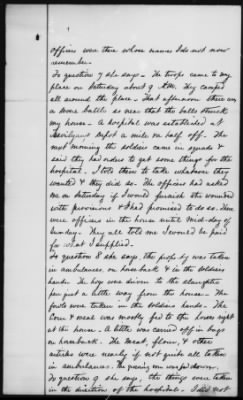 officers were there whose names I do not now
remember.
To question 7 she says. The troops came to my
place on Saturday about 9 A.M. They camped
all around the place. That afternoon there was
a battle so near that the balls struck
my house. A hospital was established at
Depot a mile or half off. The
next morning the soldiers came in squads &
said they had orders to get some things for the
hospital. I told them to take whatever they
wanted & they did so. The officers had asked
me on Saturday if I would furnish the wounded
with provisions & I had promised to do so. There
were officers in the house until Mid-day of
Sunday. They all told me I would be paid
for what I supplied.
To question 8 she says, the property was taken
in ambulances, on horseback & in the soldiers
hands. The hogs were driven to the slaughter
pen just a little way from the house. The
fowls were taken in the soldiers hands. The
Corn & meal was mostly fed to the horses right
at the house. A little was carried off in bags
on horseback. The meat, flour, & other
articles were nearly if not quite all taken
in ambulances. The was down.
To question 9 she says, the things were taken
in the direction of the hospital. I did not